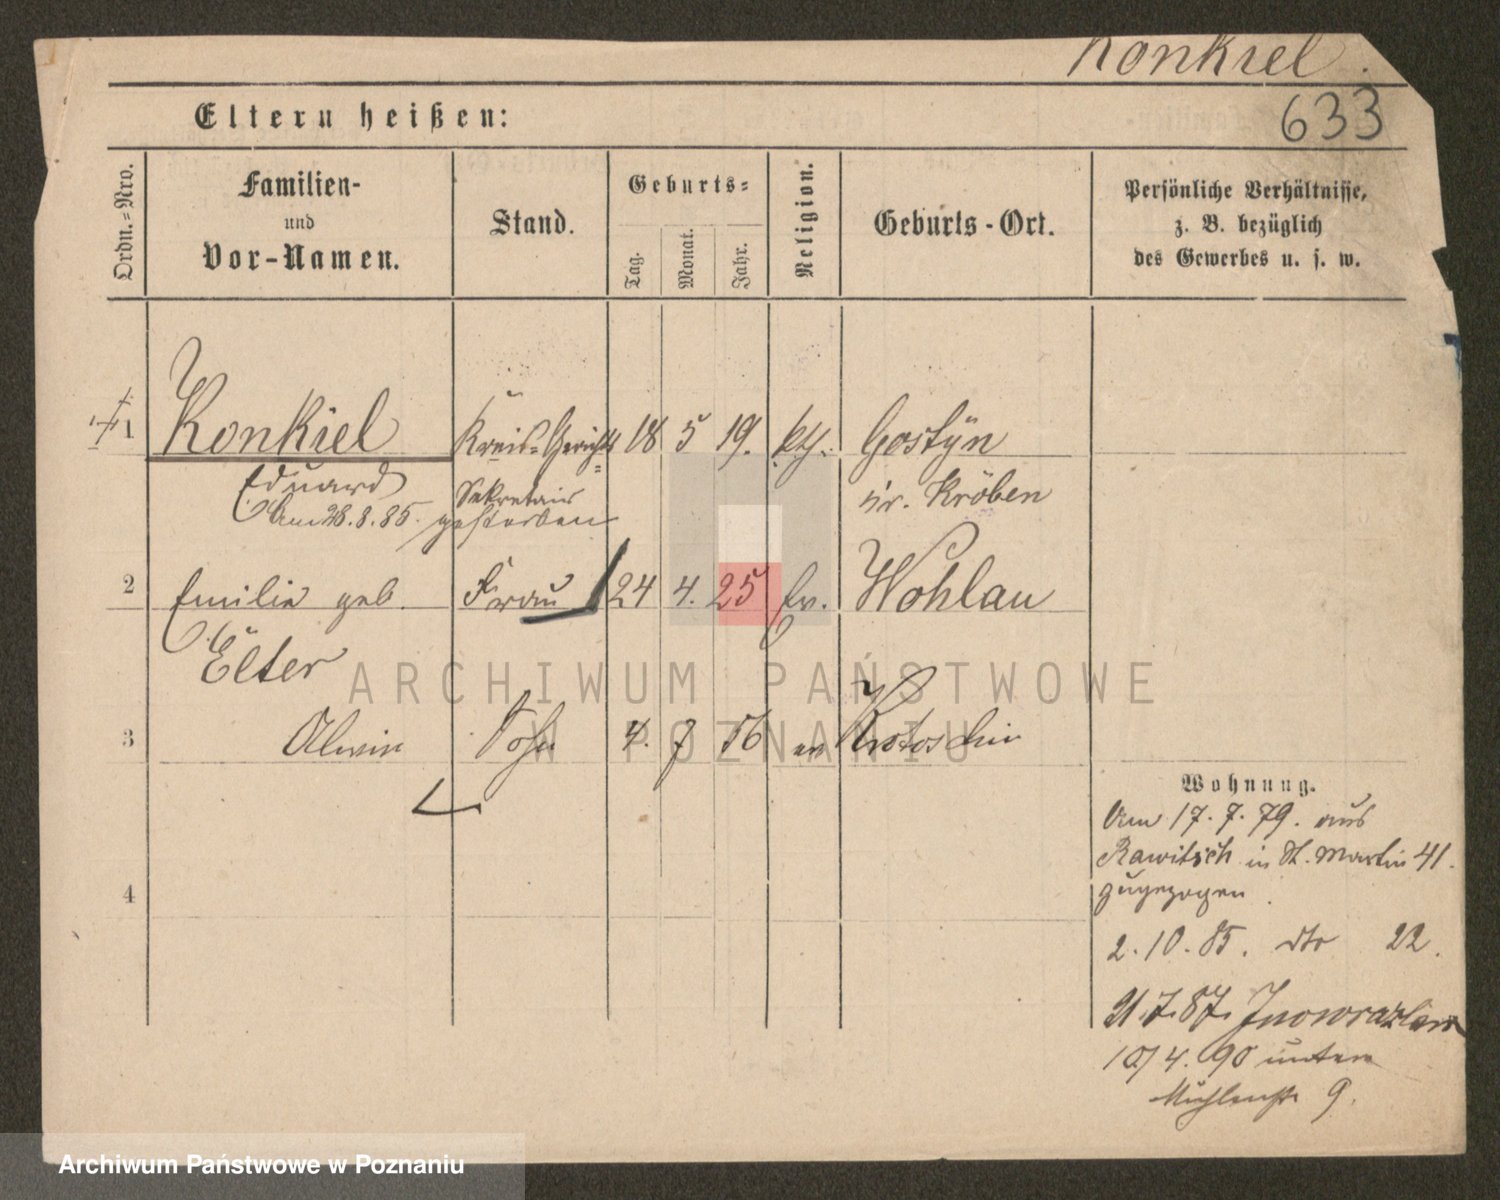 Konkiel.
633
Eltern heißen:
Ordn.-Nro.
Familien-
und
Vor-Namen.
Stand.
Geburts-
Tag.
Monat.
Jahr.
Religion.
Geburts-Ort.
Persönliche Verhältnisse,
z. B. bezüglich
des Gewerbes u. s. w.
1 Konkiel Kreis-Gerichts 18 5 19. kth. Gostÿn
Eduard Sekretair Kr. Kröben
Am 28.8.85. gestorben
2 Emilie geb. Frau 24 4. 25 ev. Wohlau
Elter
3 Alwin Sohn 4. 7 56 ev Krotoschin
4
Wohnung.
Am 17.7.79. aus
Rawitsch in St. Martin 41.
zugezogen.
2.10.85. dto 22.
21.7.87. Inowrazlaw
10/4. 90 unten
Mühlenstr 9.
ARCHIWUM PAŃSTWOWE
W POZNANIU
Archiwum Państwowe w Poznaniu